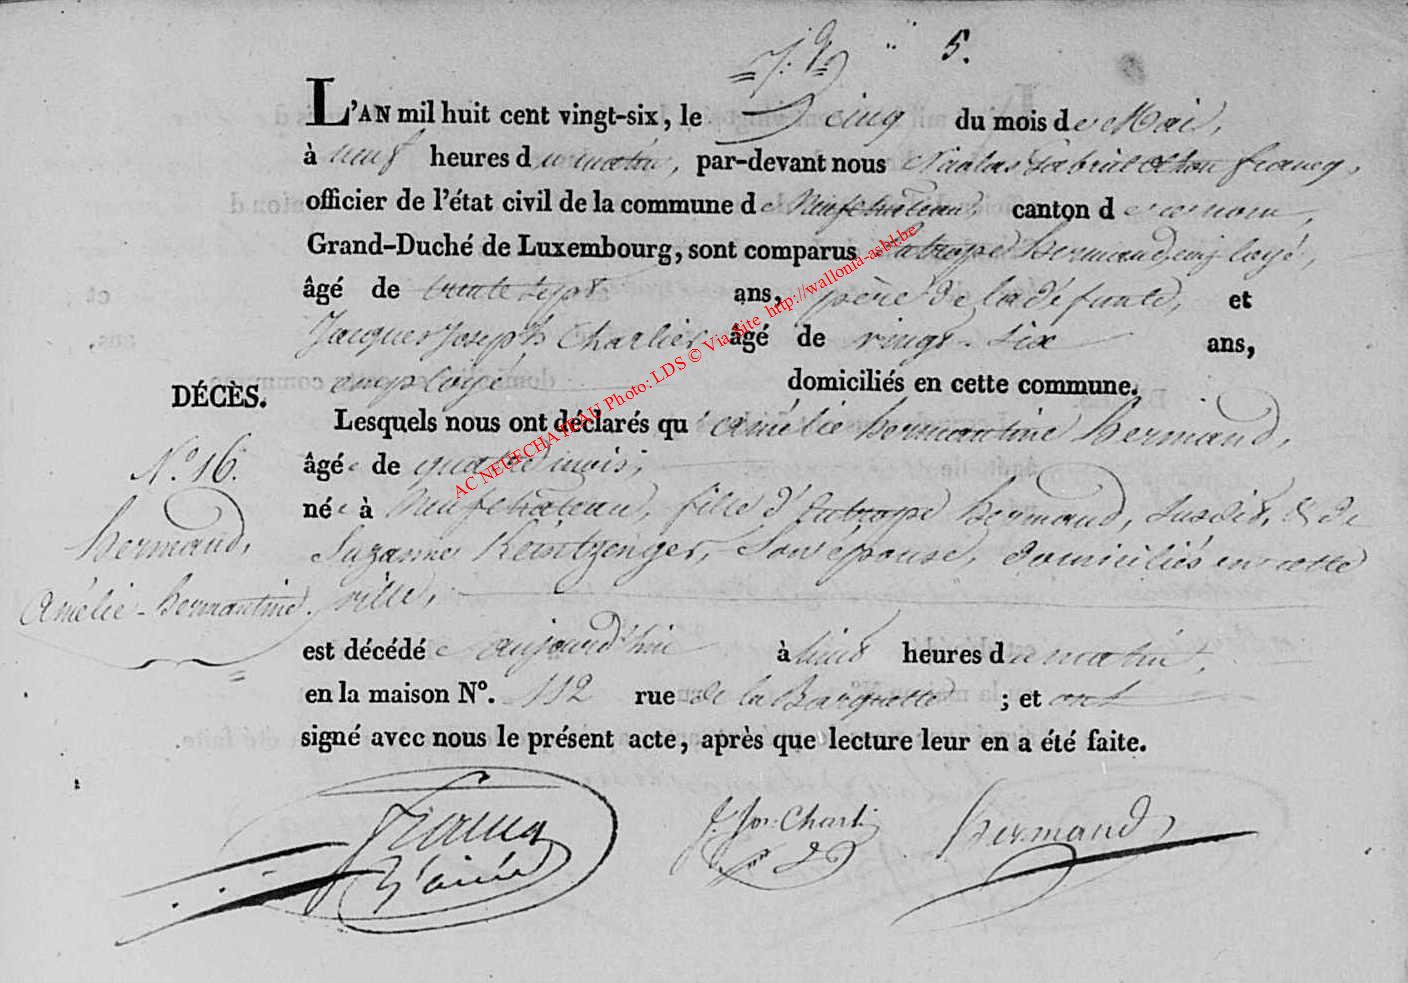 5.
L'AN mil huit cent vingt-six, le cinq du mois de Mai,
à neuf heures du matin, par-devant nous Nicolas Gabriel Francq,
officier de l'état civil de la commune de Neufchâteau, canton de ce nom,
Grand-Duché de Luxembourg, sont comparus Eutrope hermand, employé,
âgé de trente sept ans, père de la défunte, et
Jacques Joseph Charlier âgé de vingt-six ans,
employé domiciliés en cette commune.
DÉCÈS.
Lesquels nous ont déclarés qu'Amélie hermantine hermand,
N.° 16.
âgée de quatre mois,
née à Neufchâteau, fille d'Eutrope hermand, susdit, & de
hermand,
Suzanne Keintzenger, son épouse, domiciliés en cette
Amélie-hermantine.
ville,
est décédée aujourd'hui à huit heures du matin,
en la maison N°. 112 rue de la Barquette ; et ont
signé avec nous le présent acte, après que lecture leur en a été faite.
Francq
l'ainé
J. Jos. Charli
hermand
AC NEUFCHATEAU Photo: LDS © Via Site http://wallonia-asbl.be